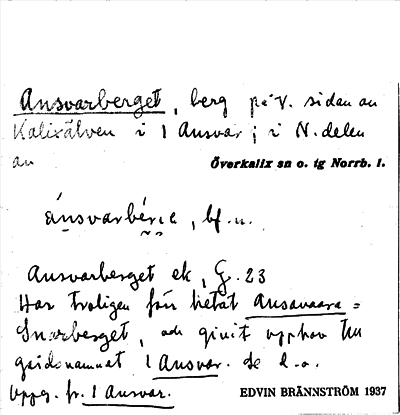 Ansvarberget, berg på V. sidan av
Kalixälven i 1 Ansvar; i N. delen
av Överkalix sn o. tg Norrb. l.
ánsvarbérⱬe, bf. n.
Ansvarberget ek, G. 23
Har troligen förr hetat Ansavaara =
Snarberget, och givit upphov till
gårdsnamnet 1 Ansvar. Se d. o.
Uppg. fr. 1 Ansvar. EDVIN BRÄNNSTRÖM 1937